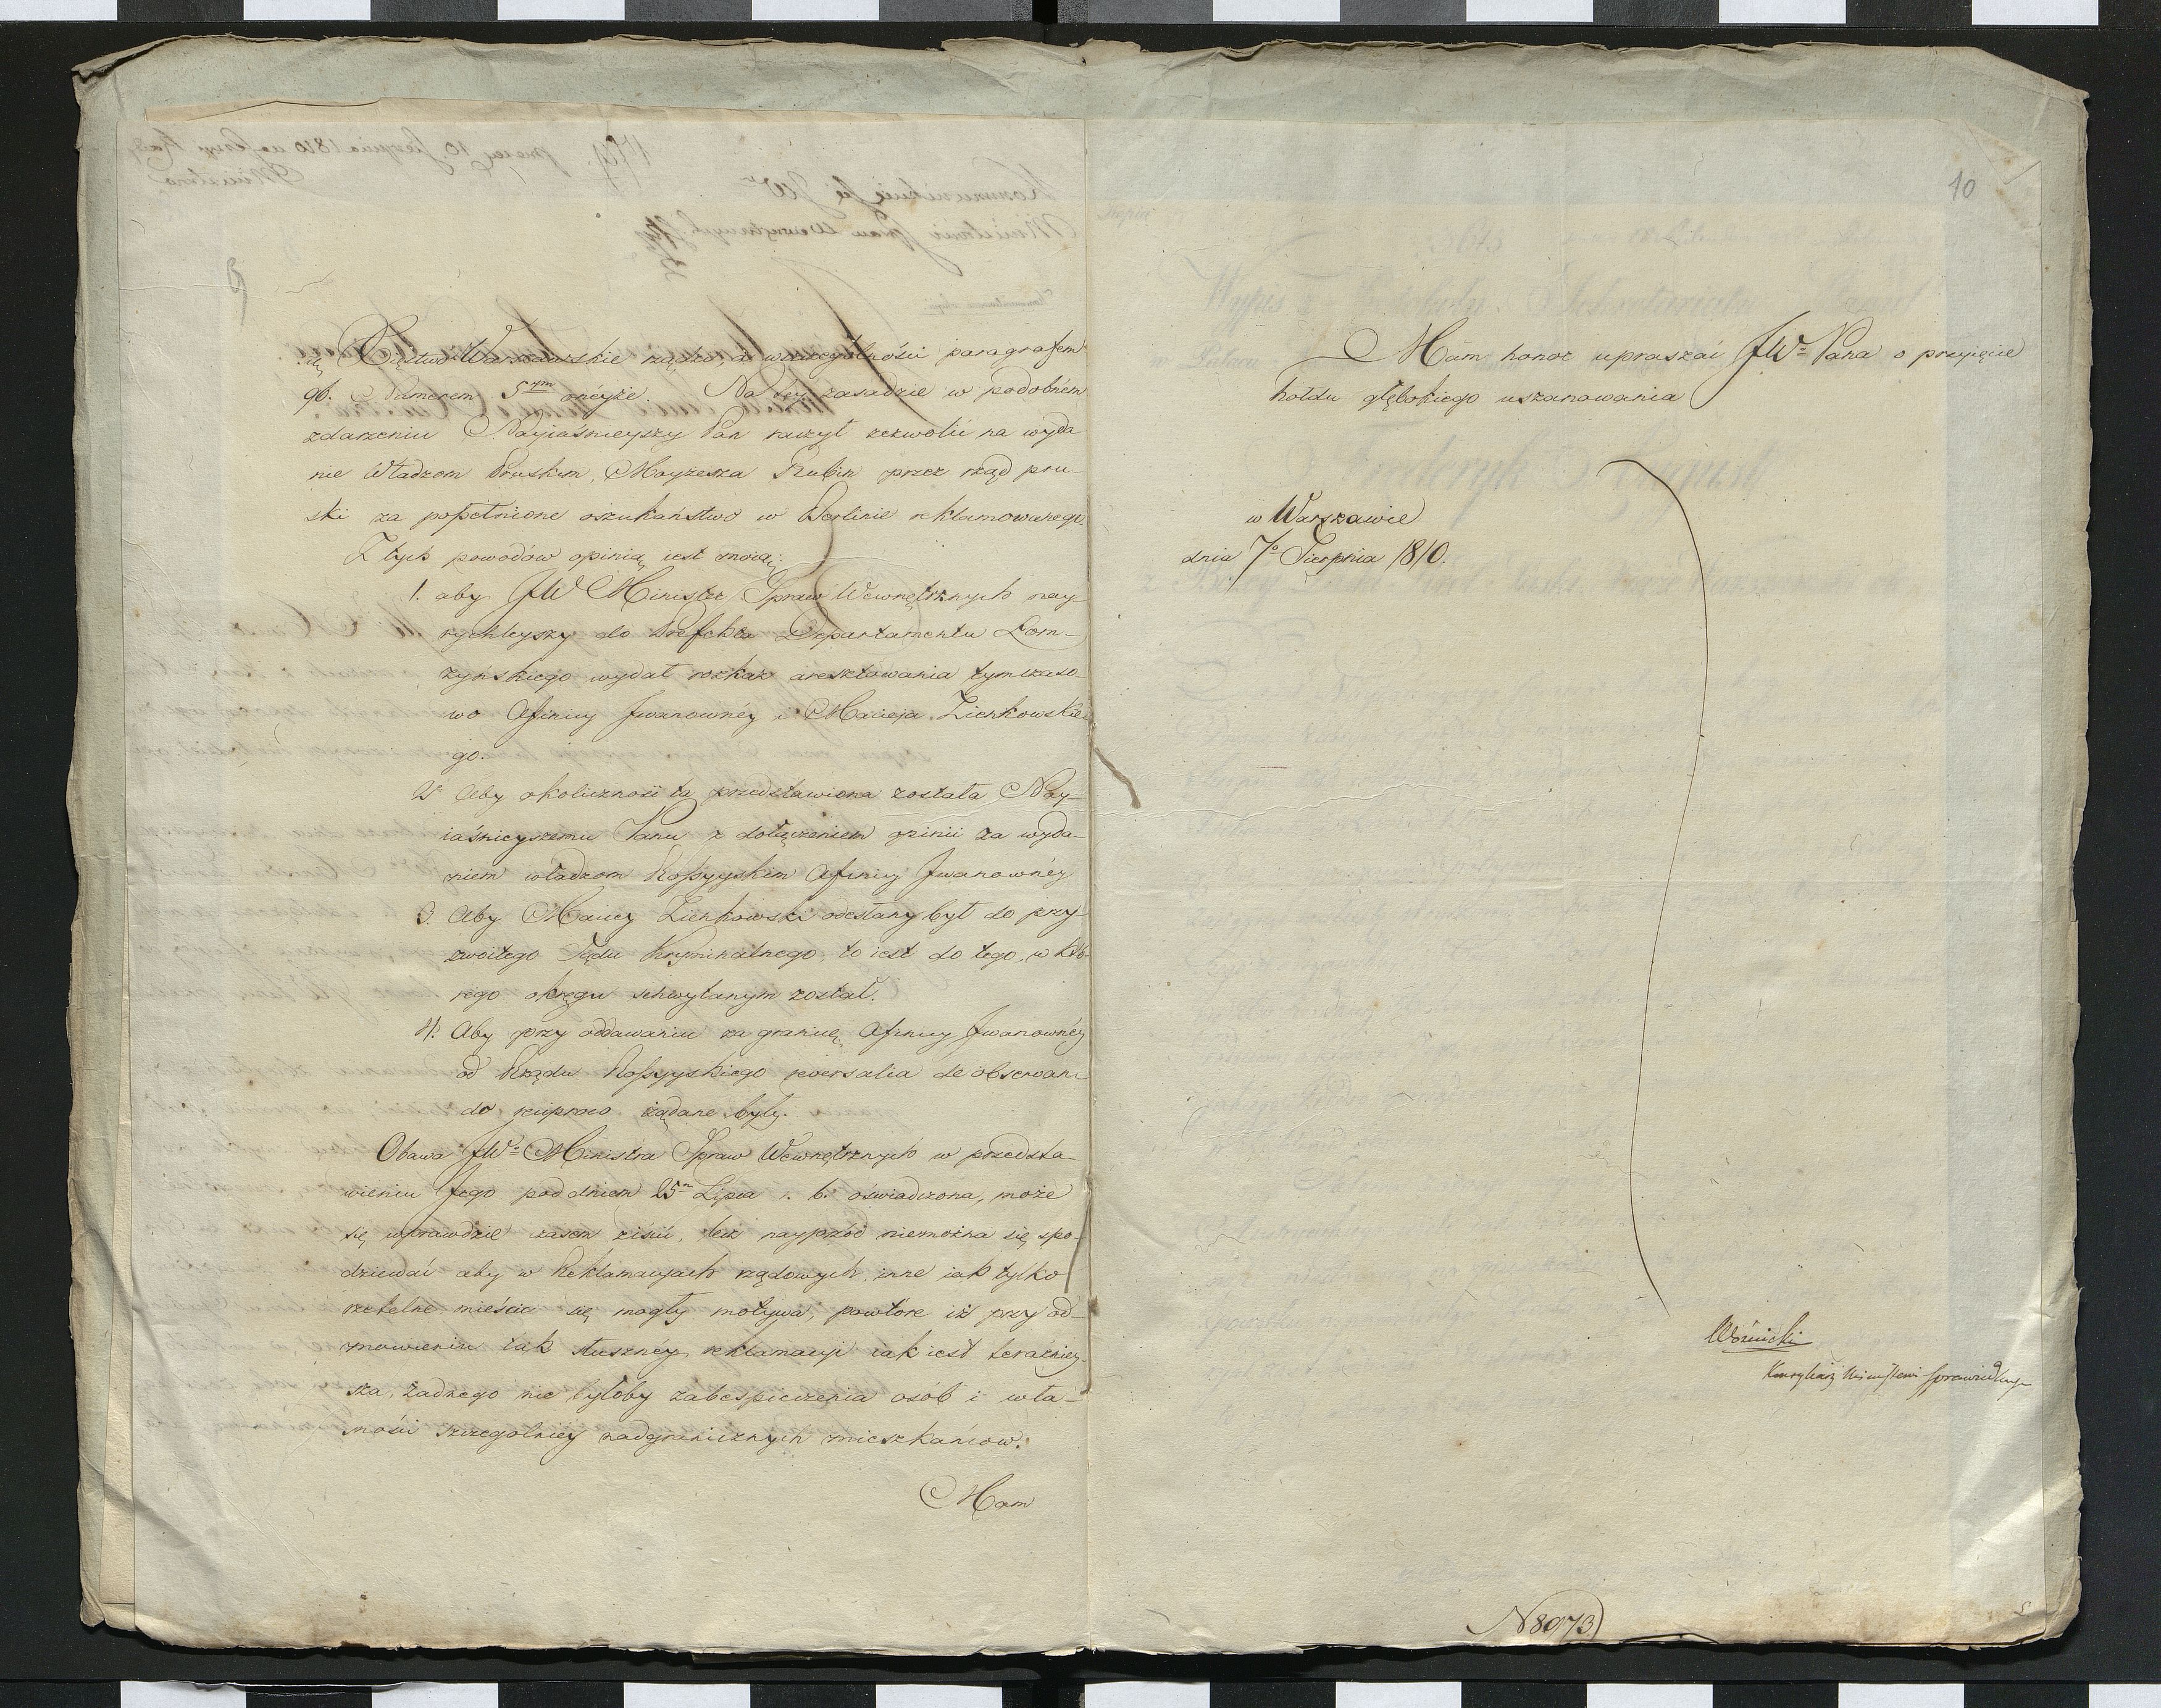 się Xięstwo Warszawskie rządzi, a w szczególności paragrafem
96. Numerem 5tym oneyże. Na tey zasadzie w podobném
zdarzeniu Nayiaśnieyszy Pan raczył zezwolić na wyda
nie Władzom Pruskim, Moyżesza Rubin przez rząd pru-
ski za popełnione oszukaństwo w Berlinie reklamowanego.
Z tych powodów opinią iest moią:
1. aby JW Minister Spraw Wewnętrznych nay-
rychleyszy do Prefekta Departamentu Łom-
zyńskiego wydał rozkaz aresztowania tymczaso-
wo Afinicy Jwanownéy i Macieja Zienkowskie-
go.
2. Aby okoliczność ta przedstawiona została Nay-
iaśnieyszemu Panu z dołączeniem opinii za wyda-
niem władzom Rossyyskim Afinicy Jwanownéy
3. Aby Maciey Zienkowski odesłany był do przy-
zwoitego Sądu Kryminalnego, to iest do tego, w któ-
rego okręgu schwytanym został.
4. Aby przy oddawaniu za granicę Afinicy Jwanownéy
od Rządu Rossyyskiego reversalia de observan-
do reciproco żądane były.
Obawa JWo Ministra Spraw Wewnętrznych w przedsta-
wieniu Jego pod dniem 25n Lipca r. b. oświadczona, może
się wprawdzie czasem ziścić, lecz nayprzód niemożna się spo-
dziewać aby w Reklamacyach rządowych, inne iak tylko
rzetelne mieścić się mogły motywa, powtóre iż przy od-
mowieniu tak słusznéy reklamacyi iak iest teraźniey-
sza, żadnego nie byłoby zabespieczenia osób i wła-
sności szczególniey nadgranicznych mieszkańców.
Mam
10
Mam honor upraszać JWo Pana o przyięcie
hołdu głębokiego uszanowania
w Warszawie
dnia 7o Sierpnia 1810.
Woźnicki
N 8973